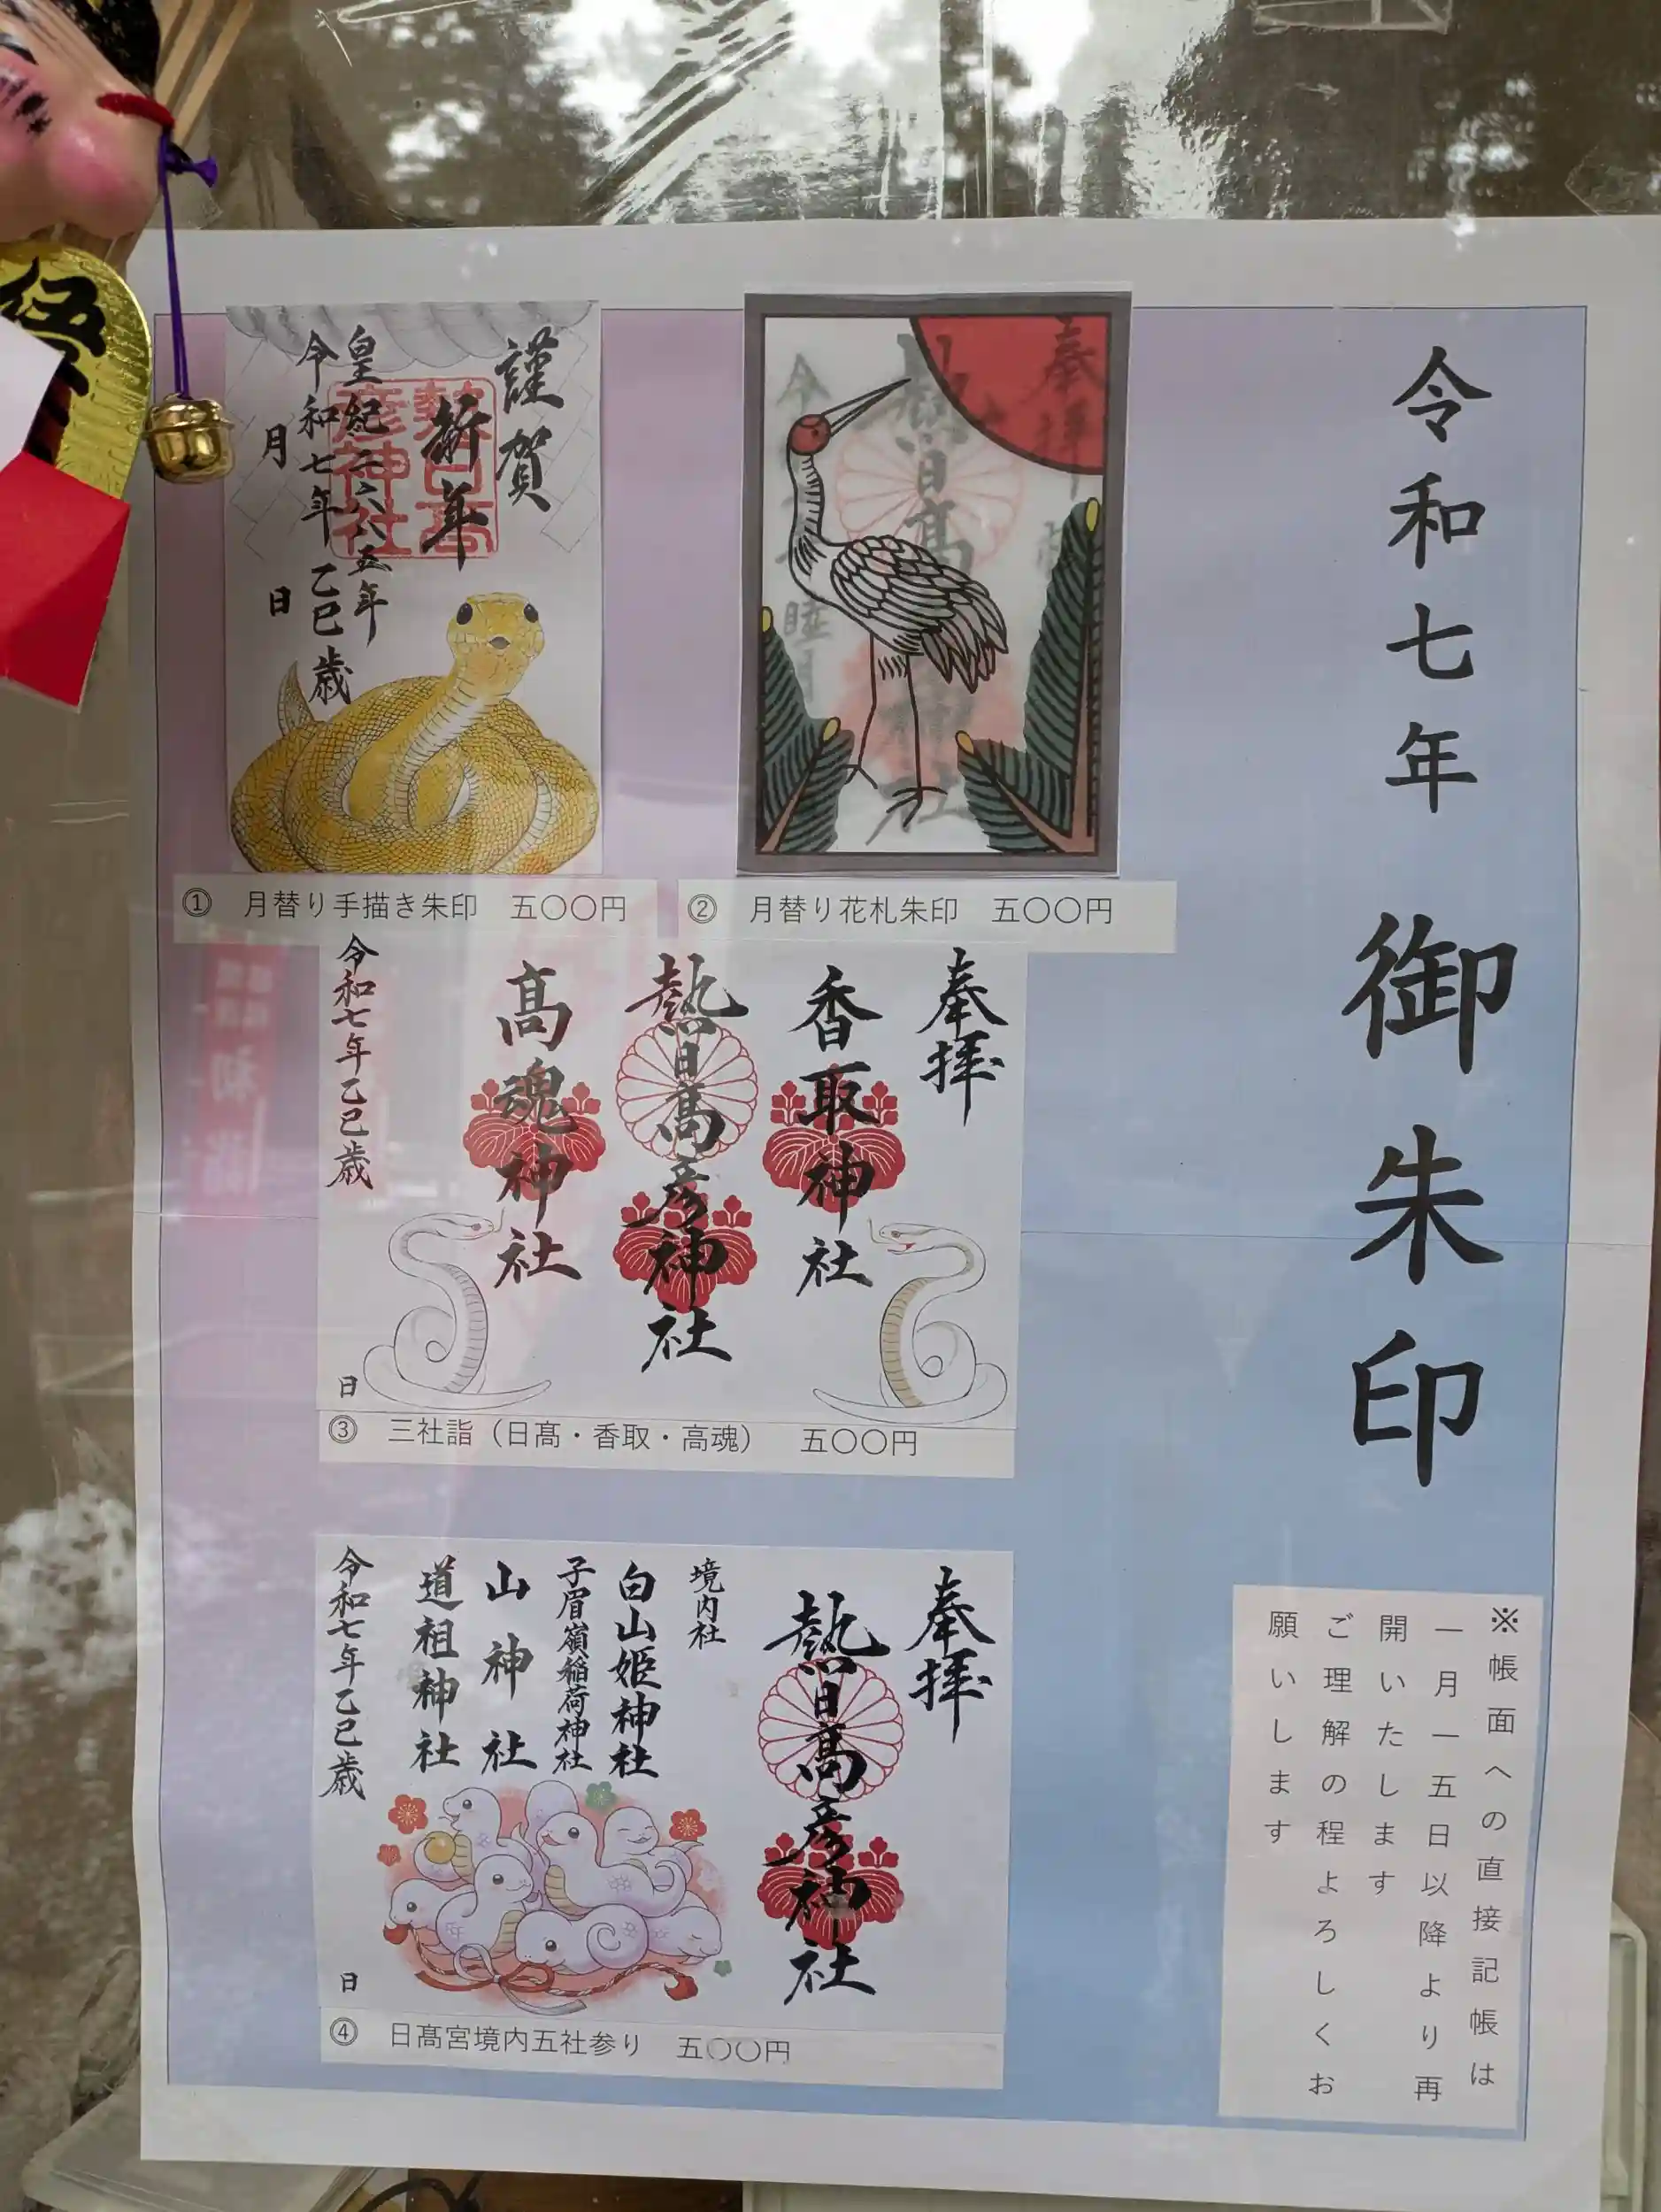 令和七年 御朱印
謹賀
新年
皇紀二六八五年
令和七年 乙巳歳
月 日
奉拝
日髙
① 月替り手描き朱印 五〇〇円
② 月替り花札朱印 五〇〇円
奉拝
香取神社
熱日髙彦神社
髙魂神社
令和七年乙巳歳
日
③ 三社詣(日髙・香取・高魂) 五〇〇円
奉拝
熱日髙彦神社
境内社
白山姫神社
子眉嶺稲荷神社
山神社
道祖神社
令和七年乙巳歳
日
④ 日髙宮境内五社参り 五〇〇円
※帳面への直接記帳は
一月一五日以降より再
開いたします
ご理解の程よろしくお
願いします